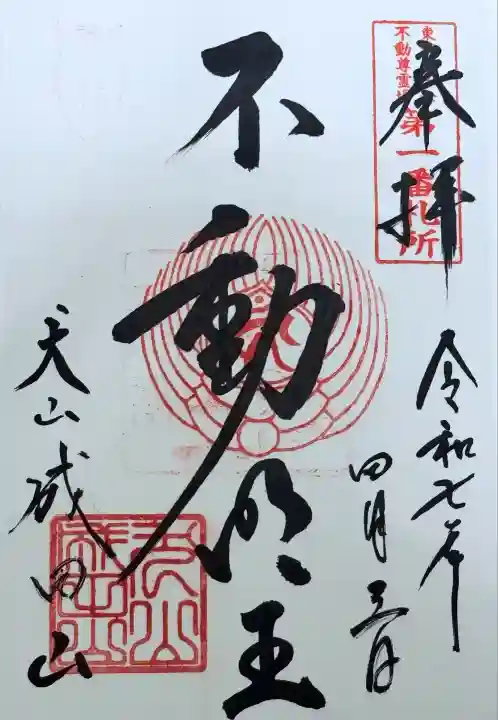 奉拝
東
不動尊霊場
第一番札所
令和七年
四月三日
不動明王
犬山成田山